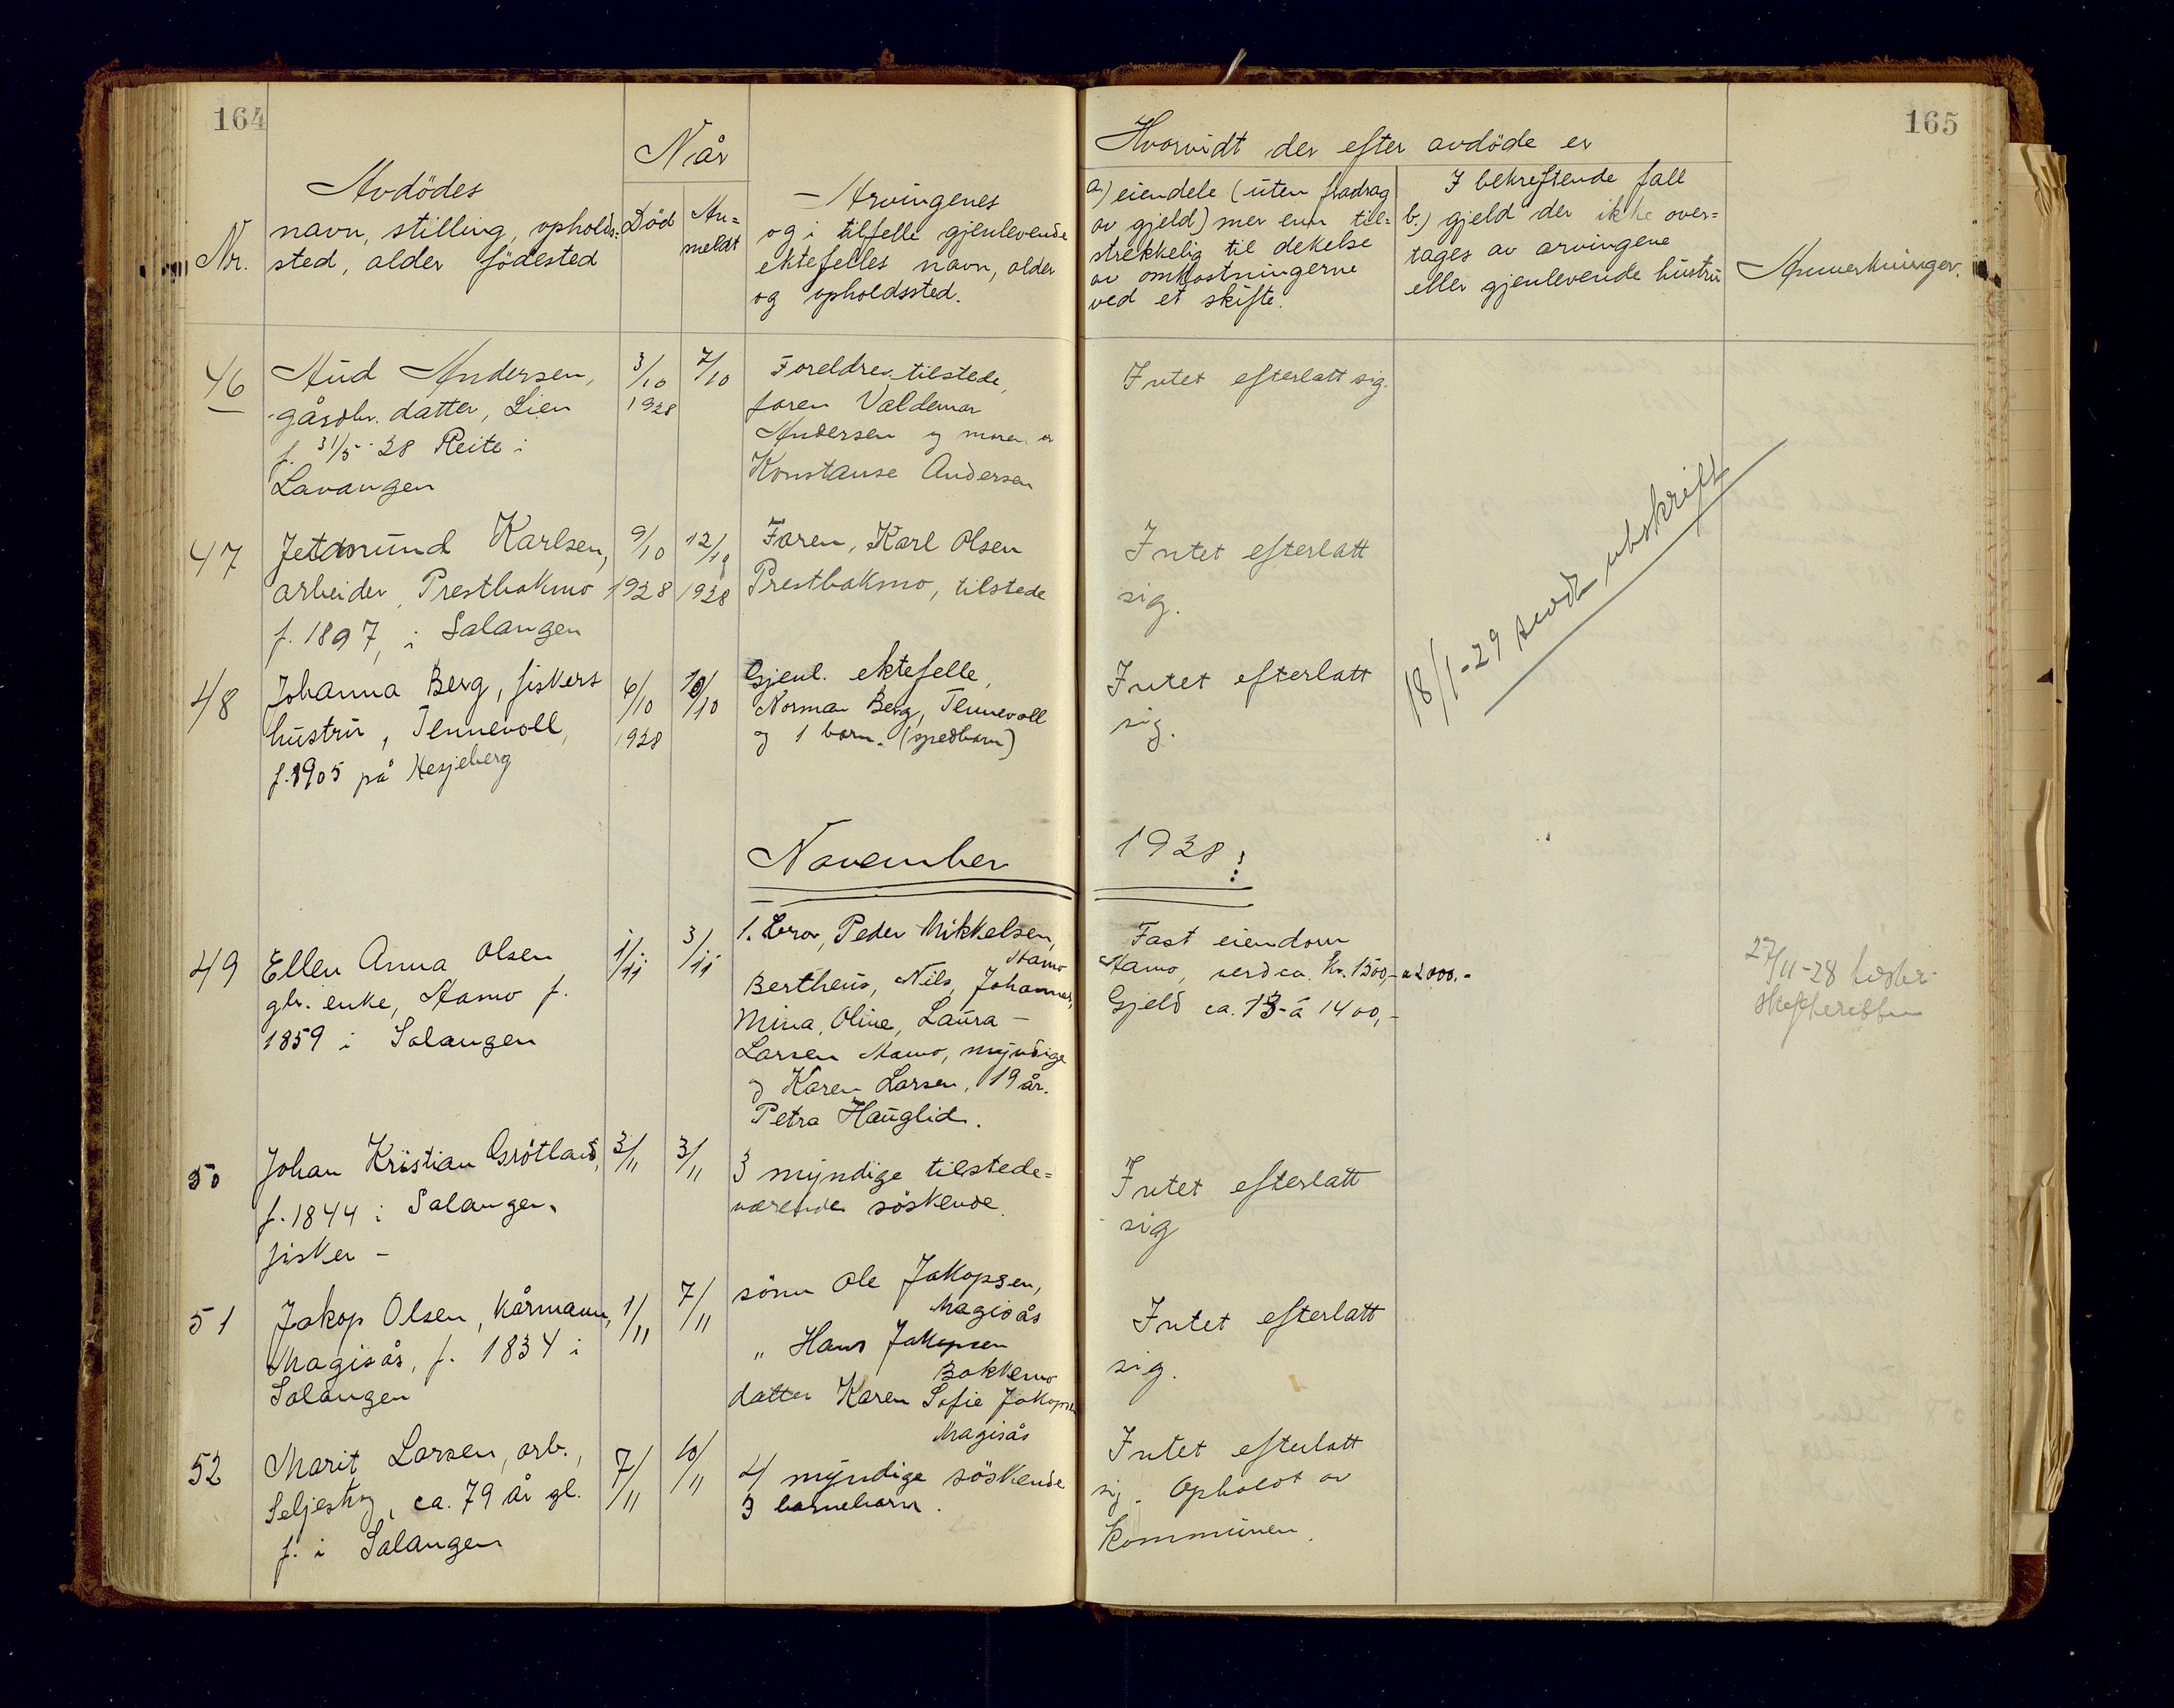 164
165
Når
Hvorvidt der efter avdöde er
Nr.
Avdödes
navn, stilling, opholds-
sted, alder födested
Död
An=
meldt
Arvingenes
og i tilfelle gjenlevende
ektefelles navn, alder
og opholdssted.
a) eiendele (uten fradrag
av gjeld) mer enn til=
strekkelig til dekelse
av omkostningerne
ved et skifte.
I bekreftende fall
b.) gjeld der ikke over=
tages av arvingene
eller gjenlevende hustru
Anmerkninger.
46
Aud Andersen,
gårdbr. datter, Lien
f. 31/5-28 Reite i
Lavangen
3/10
1928
7/10
Foreldre tilstede,
faren Valdemar
Andersen og moren er
Konstanse Andersen
Intet efterlatt sig.
47
Jetmund Karlsen,
arbeider, Prestbakmo
f. 1897, i Salangen
9/10
1928
12/10
1928
Faren, Karl Olsen
Prestbakmo, tilstede
Intet efterlatt
sig.
18/1-29 sendt utskrift
48
Johanna Berg, fiskers
hustru, Tennevoll,
f. 1905 på Hesjeberg
6/10
1928
10/10
Gjenl. ektefelle,
Norman Berg, Tennevoll
og 1 barn. (spedbarn)
Intet efterlatt
sig.
November
1928:
49
Ellen Anna Olsen
gbr. enke, Mamo f.
1859 i Salangen
1/11
3/11
1. bror, Peder Mikkelsen,
Mamo
Bertheus, Nils, Johannes,
Mina, Oline, Laura -
Larsen Mamo, myndige
og Karen Larsen, 19 år.
Petra Hauglid.
Fast eiendom
Mamo, verd ca. Kr. 1500,- a 2000.-
Gjeld ca. 13- á 1400,-
27/11-28
50
Johan Kristian Grötland,
f. 1844 i Salangen,
fisker -
3/11
3/11
3 myndige tilstede=
værende söskende.
Intet efterlatt
sig
51
Jakop Olsen, kårmann,
Magisås, f. 1834 i
Salangen
1/11
7/11
sönn Ole Jakopsen,
Magisås
" Hans Jakopsen
Bakkemo
datter Karen Sofie Jakopsen
Magisås
Intet efterlatt
sig.
52
Marit Larsen, arb.,
Seljeskog, ca. 79 år gl.
f. i Salangen
7/11
10/11
4 myndige söskende
3 barnebarn.
Intet efterlatt
sig. Opholdt av
kommunen.